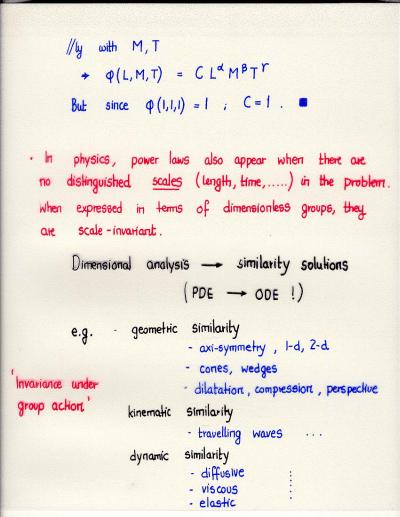 //ly with M, T
→ φ(L, M, T) = C L^α M^β T^γ
But since φ(1,1,1) = 1 ; C = 1 . ■
· In physics, power laws also appear when there are
no distinguished scales (length, time, .....) in the problem.
When expressed in terms of dimensionless groups, they
are scale-invariant.
Dimensional analysis → similarity solutions
( PDE → ODE ! )
e.g. - geometric similarity
- axi-symmetry , 1-d, 2-d
- cones, wedges
- dilatation, compression, perspective
'Invariance under
group action'
kinematic similarity
- travelling waves ...
dynamic similarity
- diffusive
- viscous
- elastic